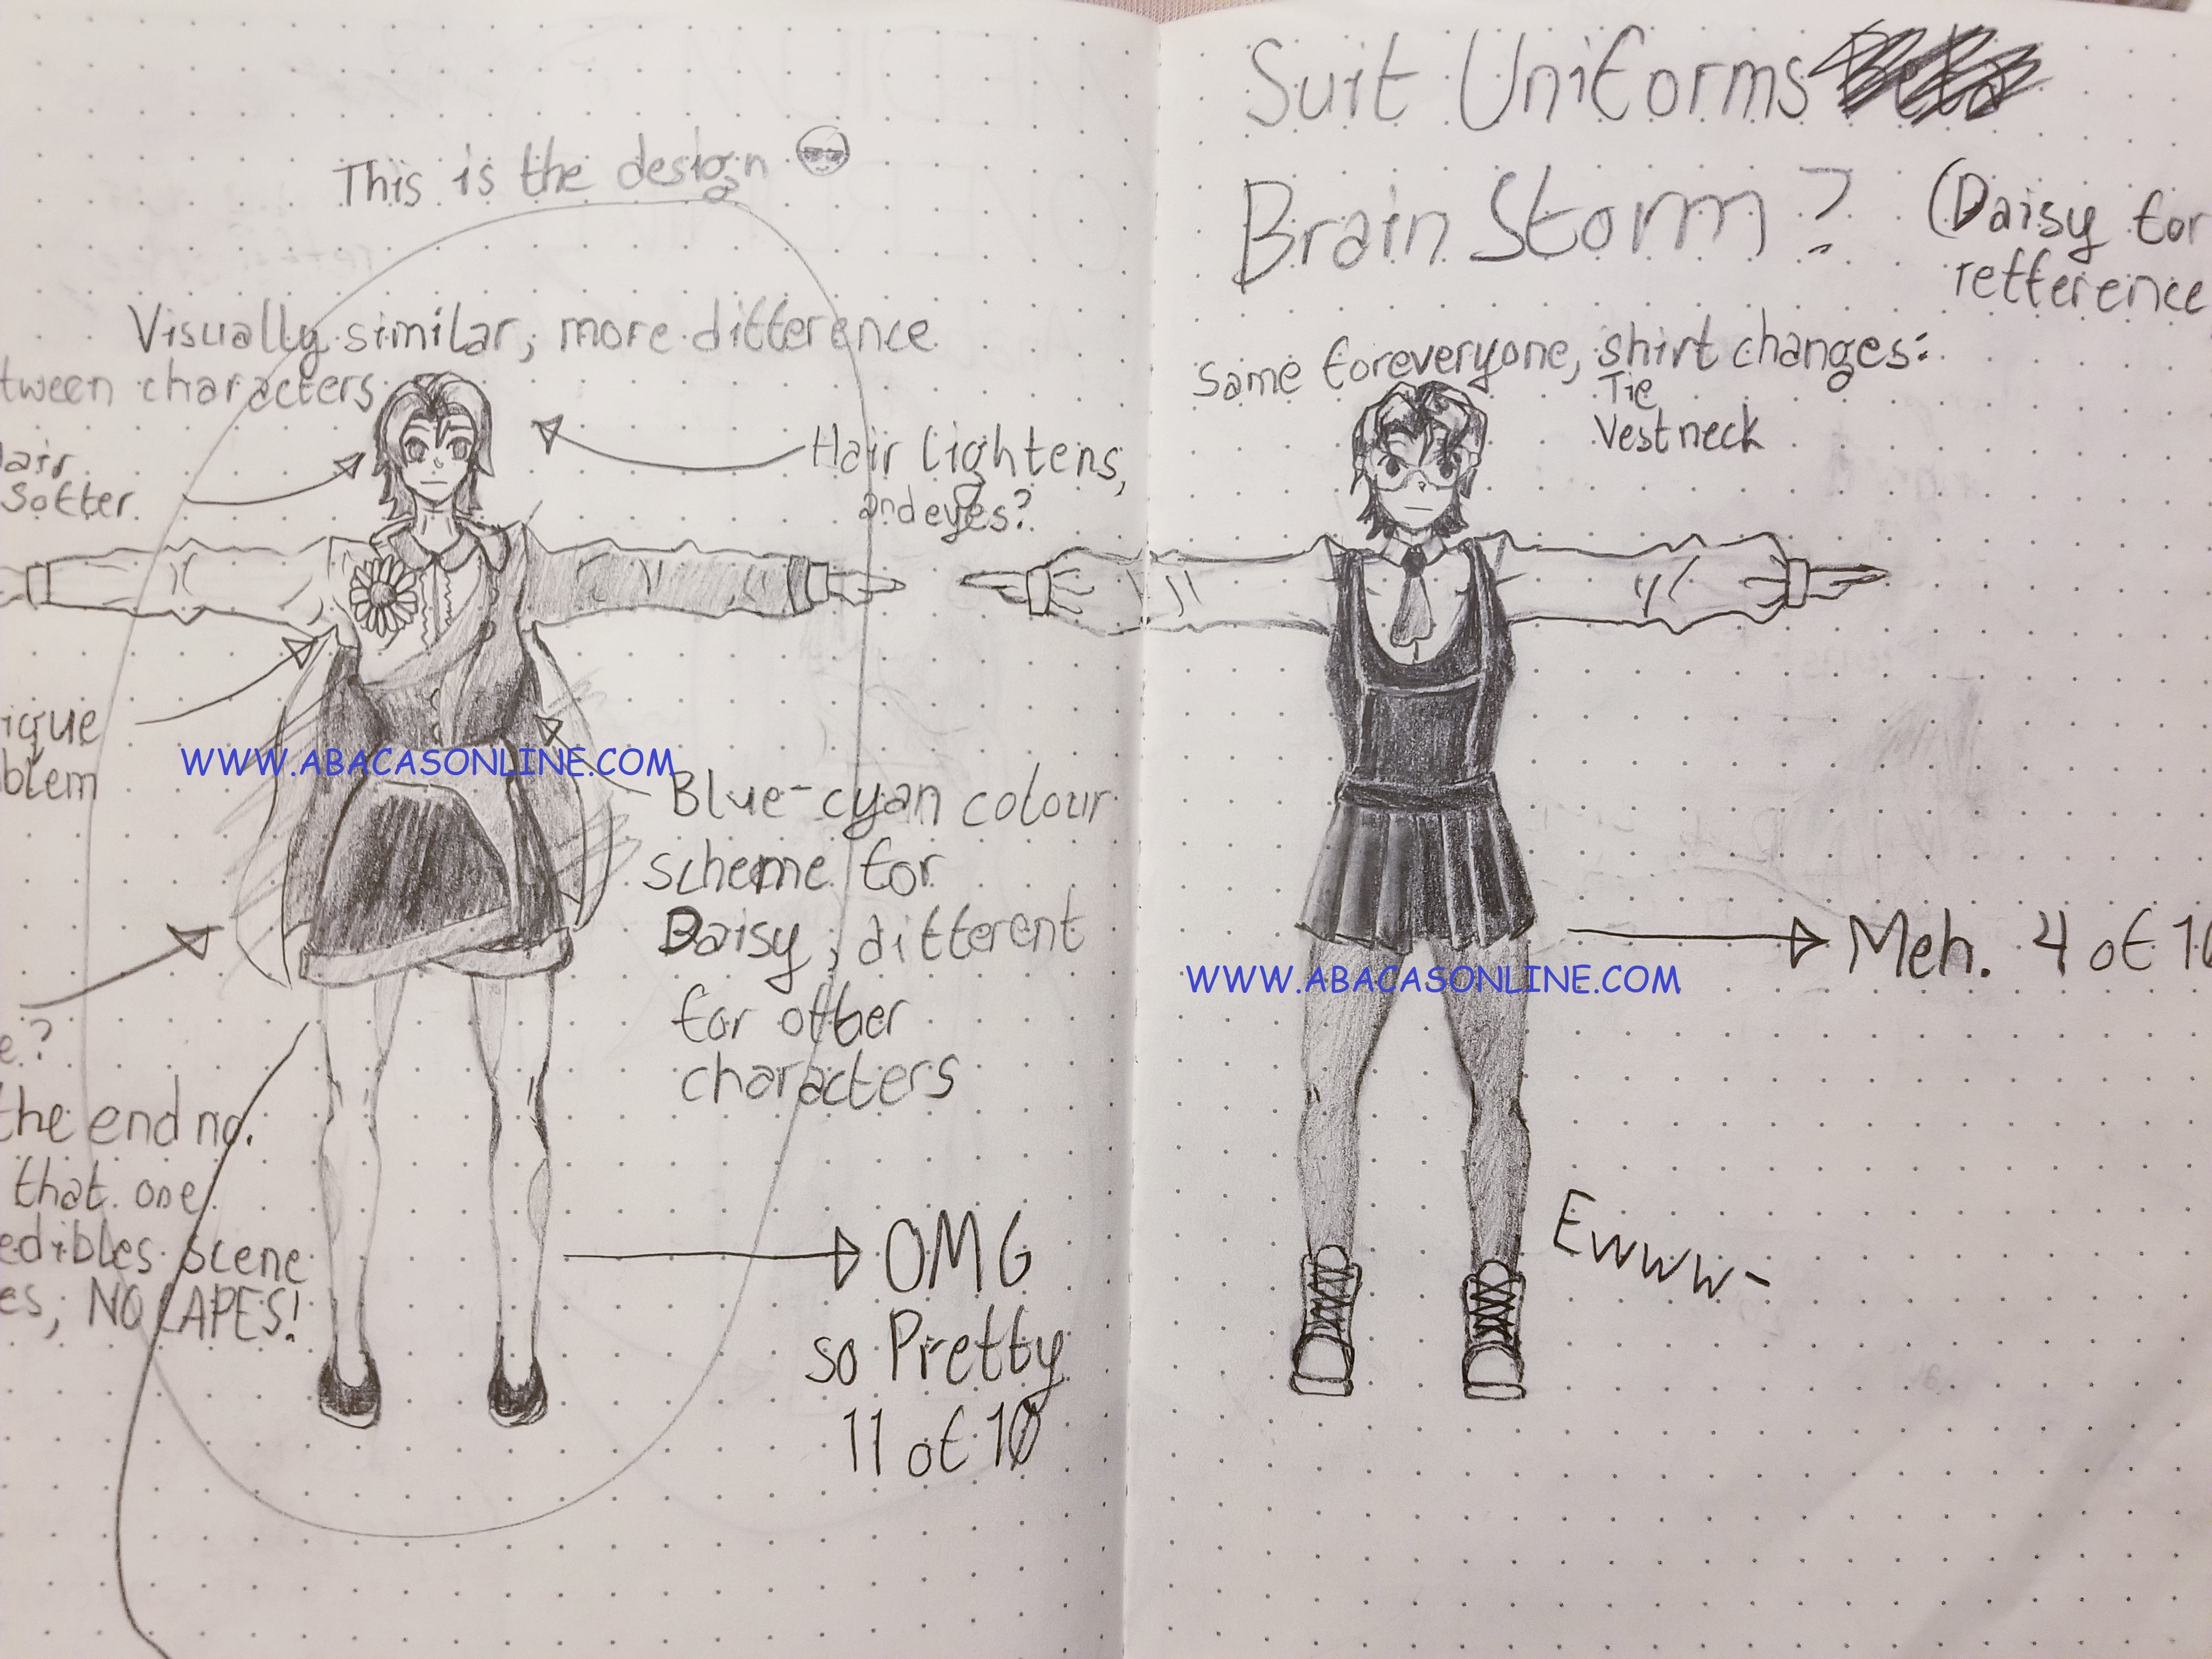 This is the design
Visually similar, more difference
tween characters
Hair lightens,
and eyes?
air
Softer
ique
blem
WWW.ABACASONLINE.COM
Blue-cyan colour
scheme for
Daisy, different
for other
characters
e?
the end no.
that one
edibles scene
es, NO CAPES!
OMG
so Pretty
11 of 10
Suit Uniforms
Brain Storm?
(Daisy for
refference
Same foreveryone, shirt changes:
Tie
Vest neck
WWW.ABACASONLINE.COM
Meh. 4 of 10
Ewww-